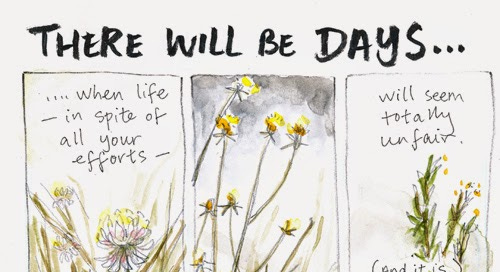 THERE WILL BE DAYS...
.... when life
– in spite of
all your
efforts –
will seem
totally
unfair.
(And it is